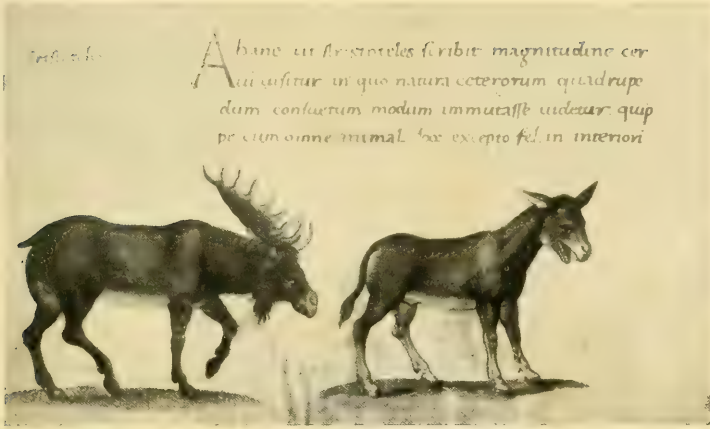 Abane ut Aristoteles scribit magnitudine cer
ui uisitur in quo natura ceterorum quadrupe
dum consuetum modum immutasse uidetur quip
pe cum omne animal hoc excepto fel in interiori